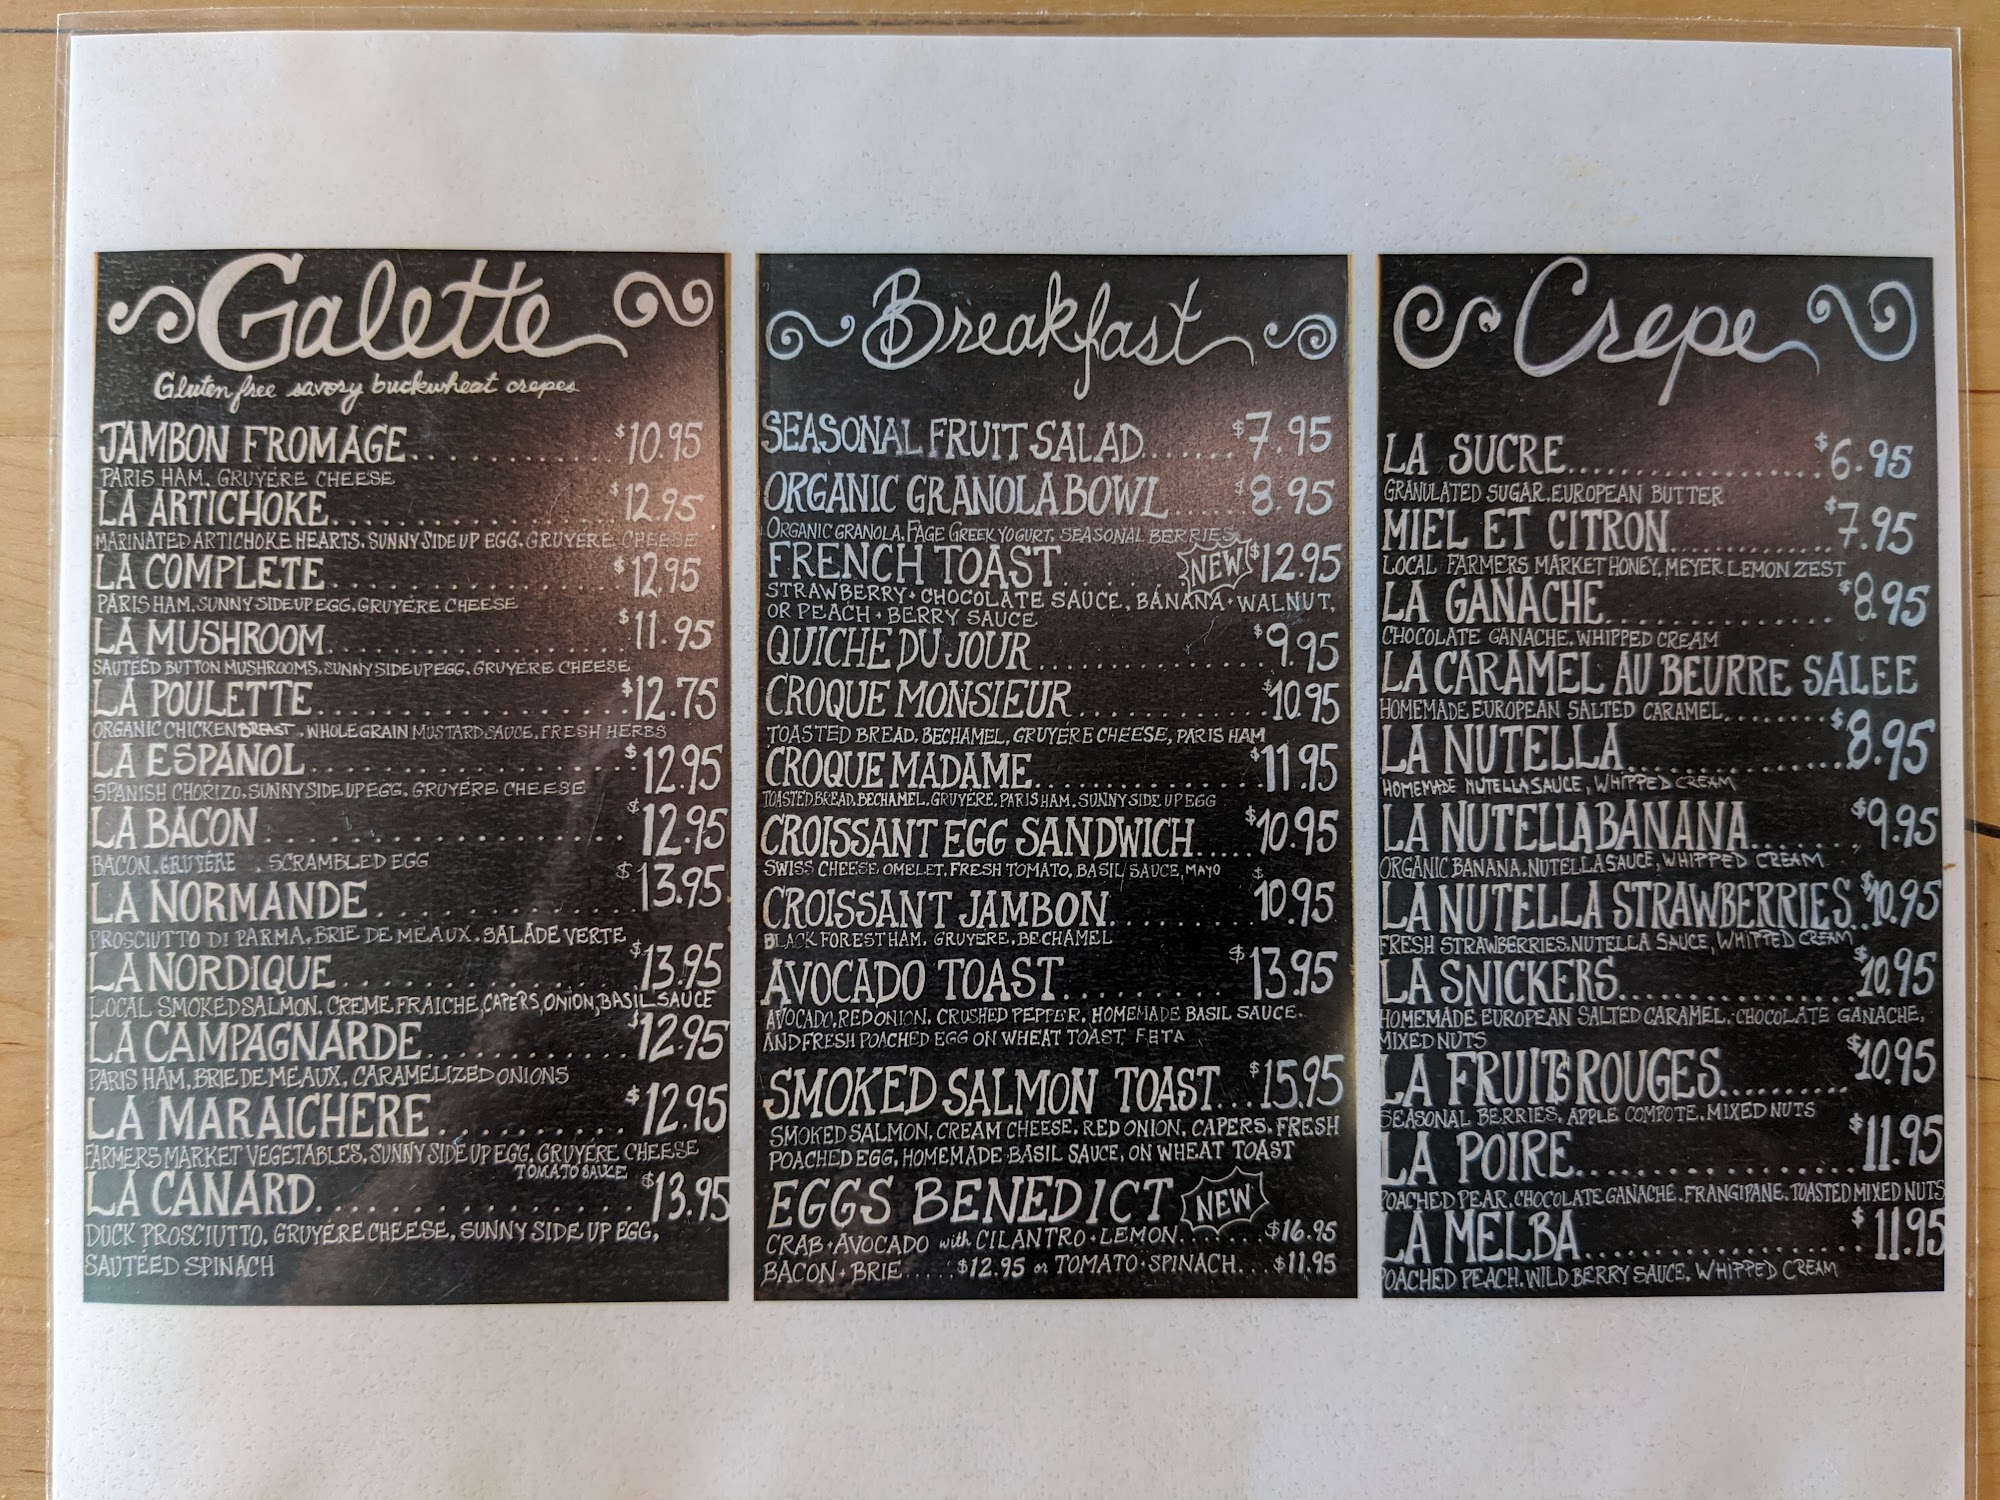 Galette
Gluten free savory buckwheat crepes
JAMBON FROMAGE.......... $10.95
PARIS HAM, GRUYÉRE CHEESE
LA ARTICHOKE.......... $12.95
MARINATED ARTICHOKE HEARTS, SUNNY SIDE UP EGG, GRUYÉRE CHEESE
LA COMPLETE.......... $12.95
PARIS HAM, SUNNY SIDE UP EGG, GRUYÉRE CHEESE
LA MUSHROOM.......... $11.95
SAUTÉED BUTTON MUSHROOMS, SUNNY SIDE UP EGG, GRUYÉRE CHEESE
LA POULETTE.......... $12.75
ORGANIC CHICKEN BREAST, WHOLE GRAIN MUSTARD SAUCE, FRESH HERBS
LA ESPANOL.......... $12.95
SPANISH CHORIZO, SUNNY SIDE UP EGG, GRUYÉRE CHEESE
LA BACON.......... $12.95
BACON, GRUYÉRE, SCRAMBLED EGG
LA NORMANDE.......... $13.95
PROSCIUTTO DI PARMA, BRIE DE MEAUX, SALADE VERTE
LA NORDIQUE.......... $13.95
LOCAL SMOKED SALMON, CREME FRAICHE, CAPERS, ONION, BASIL SAUCE
LA CAMPAGNARDE.......... $12.95
PARIS HAM, BRIE DE MEAUX, CARAMELIZED ONIONS
LA MARAICHERE.......... $12.95
FARMERS MARKET VEGETABLES, SUNNY SIDE UP EGG, GRUYÉRE CHEESE
TOMATO SAUCE
LA CANARD.......... $13.95
DUCK PROSCIUTTO, GRUYÉRE CHEESE, SUNNY SIDE UP EGG,
SAUTÉED SPINACH
Breakfast
SEASONAL FRUIT SALAD....... $7.95
ORGANIC GRANOLA BOWL...... $8.95
ORGANIC GRANOLA, FAGE GREEK YOGURT, SEASONAL BERRIES
FRENCH TOAST....... NEW $12.95
STRAWBERRY + CHOCOLATE SAUCE, BANANA + WALNUT,
OR PEACH + BERRY SAUCE
QUICHE DU JOUR.......... $9.95
CROQUE MONSIEUR.......... $10.95
TOASTED BREAD, BECHAMEL, GRUYÉRE CHEESE, PARIS HAM
CROQUE MADAME.......... $11.95
TOASTED BREAD, BECHAMEL, GRUYERE, PARIS HAM, SUNNY SIDE UP EGG
CROISSANT EGG SANDWICH..... $10.95
SWISS CHEESE OMELET, FRESH TOMATO, BASIL SAUCE, MAYO
CROISSANT JAMBON........ $10.95
BLACK FOREST HAM, GRUYERE, BECHAMEL
AVOCADO TOAST.......... $13.95
AVOCADO, RED ONION, CRUSHED PEPPER, HOMEMADE BASIL SAUCE,
AND FRESH POACHED EGG ON WHEAT TOAST, FETA
SMOKED SALMON TOAST... $15.95
SMOKED SALMON, CREAM CHEESE, RED ONION, CAPERS, FRESH
POACHED EGG, HOMEMADE BASIL SAUCE, ON WHEAT TOAST
EGGS BENEDICT NEW
CRAB + AVOCADO with CILANTRO + LEMON....... $16.95
BACON + BRIE..... $12.95 or TOMATO + SPINACH... $11.95
Crepe
LA SUCRE.......... $6.95
GRANULATED SUGAR, EUROPEAN BUTTER
MIEL ET CITRON.......... $7.95
LOCAL FARMERS MARKET HONEY, MEYER LEMON ZEST
LA GANACHE.......... $8.95
CHOCOLATE GANACHE, WHIPPED CREAM
LA CARAMEL AU BEURRE SALEE
HOMEMADE EUROPEAN SALTED CARAMEL........ $8.95
LA NUTELLA..........
HOMEMADE NUTELLA SAUCE, WHIPPED CREAM
LA NUTELLA BANANA....... $9.95
ORGANIC BANANA, NUTELLA SAUCE, WHIPPED CREAM
LA NUTELLA STRAWBERRIES.. $10.95
FRESH STRAWBERRIES, NUTELLA SAUCE, WHIPPED CREAM
LA SNICKERS.......... $10.95
HOMEMADE EUROPEAN SALTED CARAMEL, CHOCOLATE GANACHE,
MIXED NUTS
LA FRUITS ROUGES........ $10.95
SEASONAL BERRIES, APPLE COMPOTE, MIXED NUTS
LA POIRE.......... $11.95
POACHED PEAR, CHOCOLATE GANACHE, FRANGIPANE, TOASTED MIXED NUTS
LA MELBA.......... $11.95
POACHED PEACH, WILD BERRY SAUCE, WHIPPED CREAM